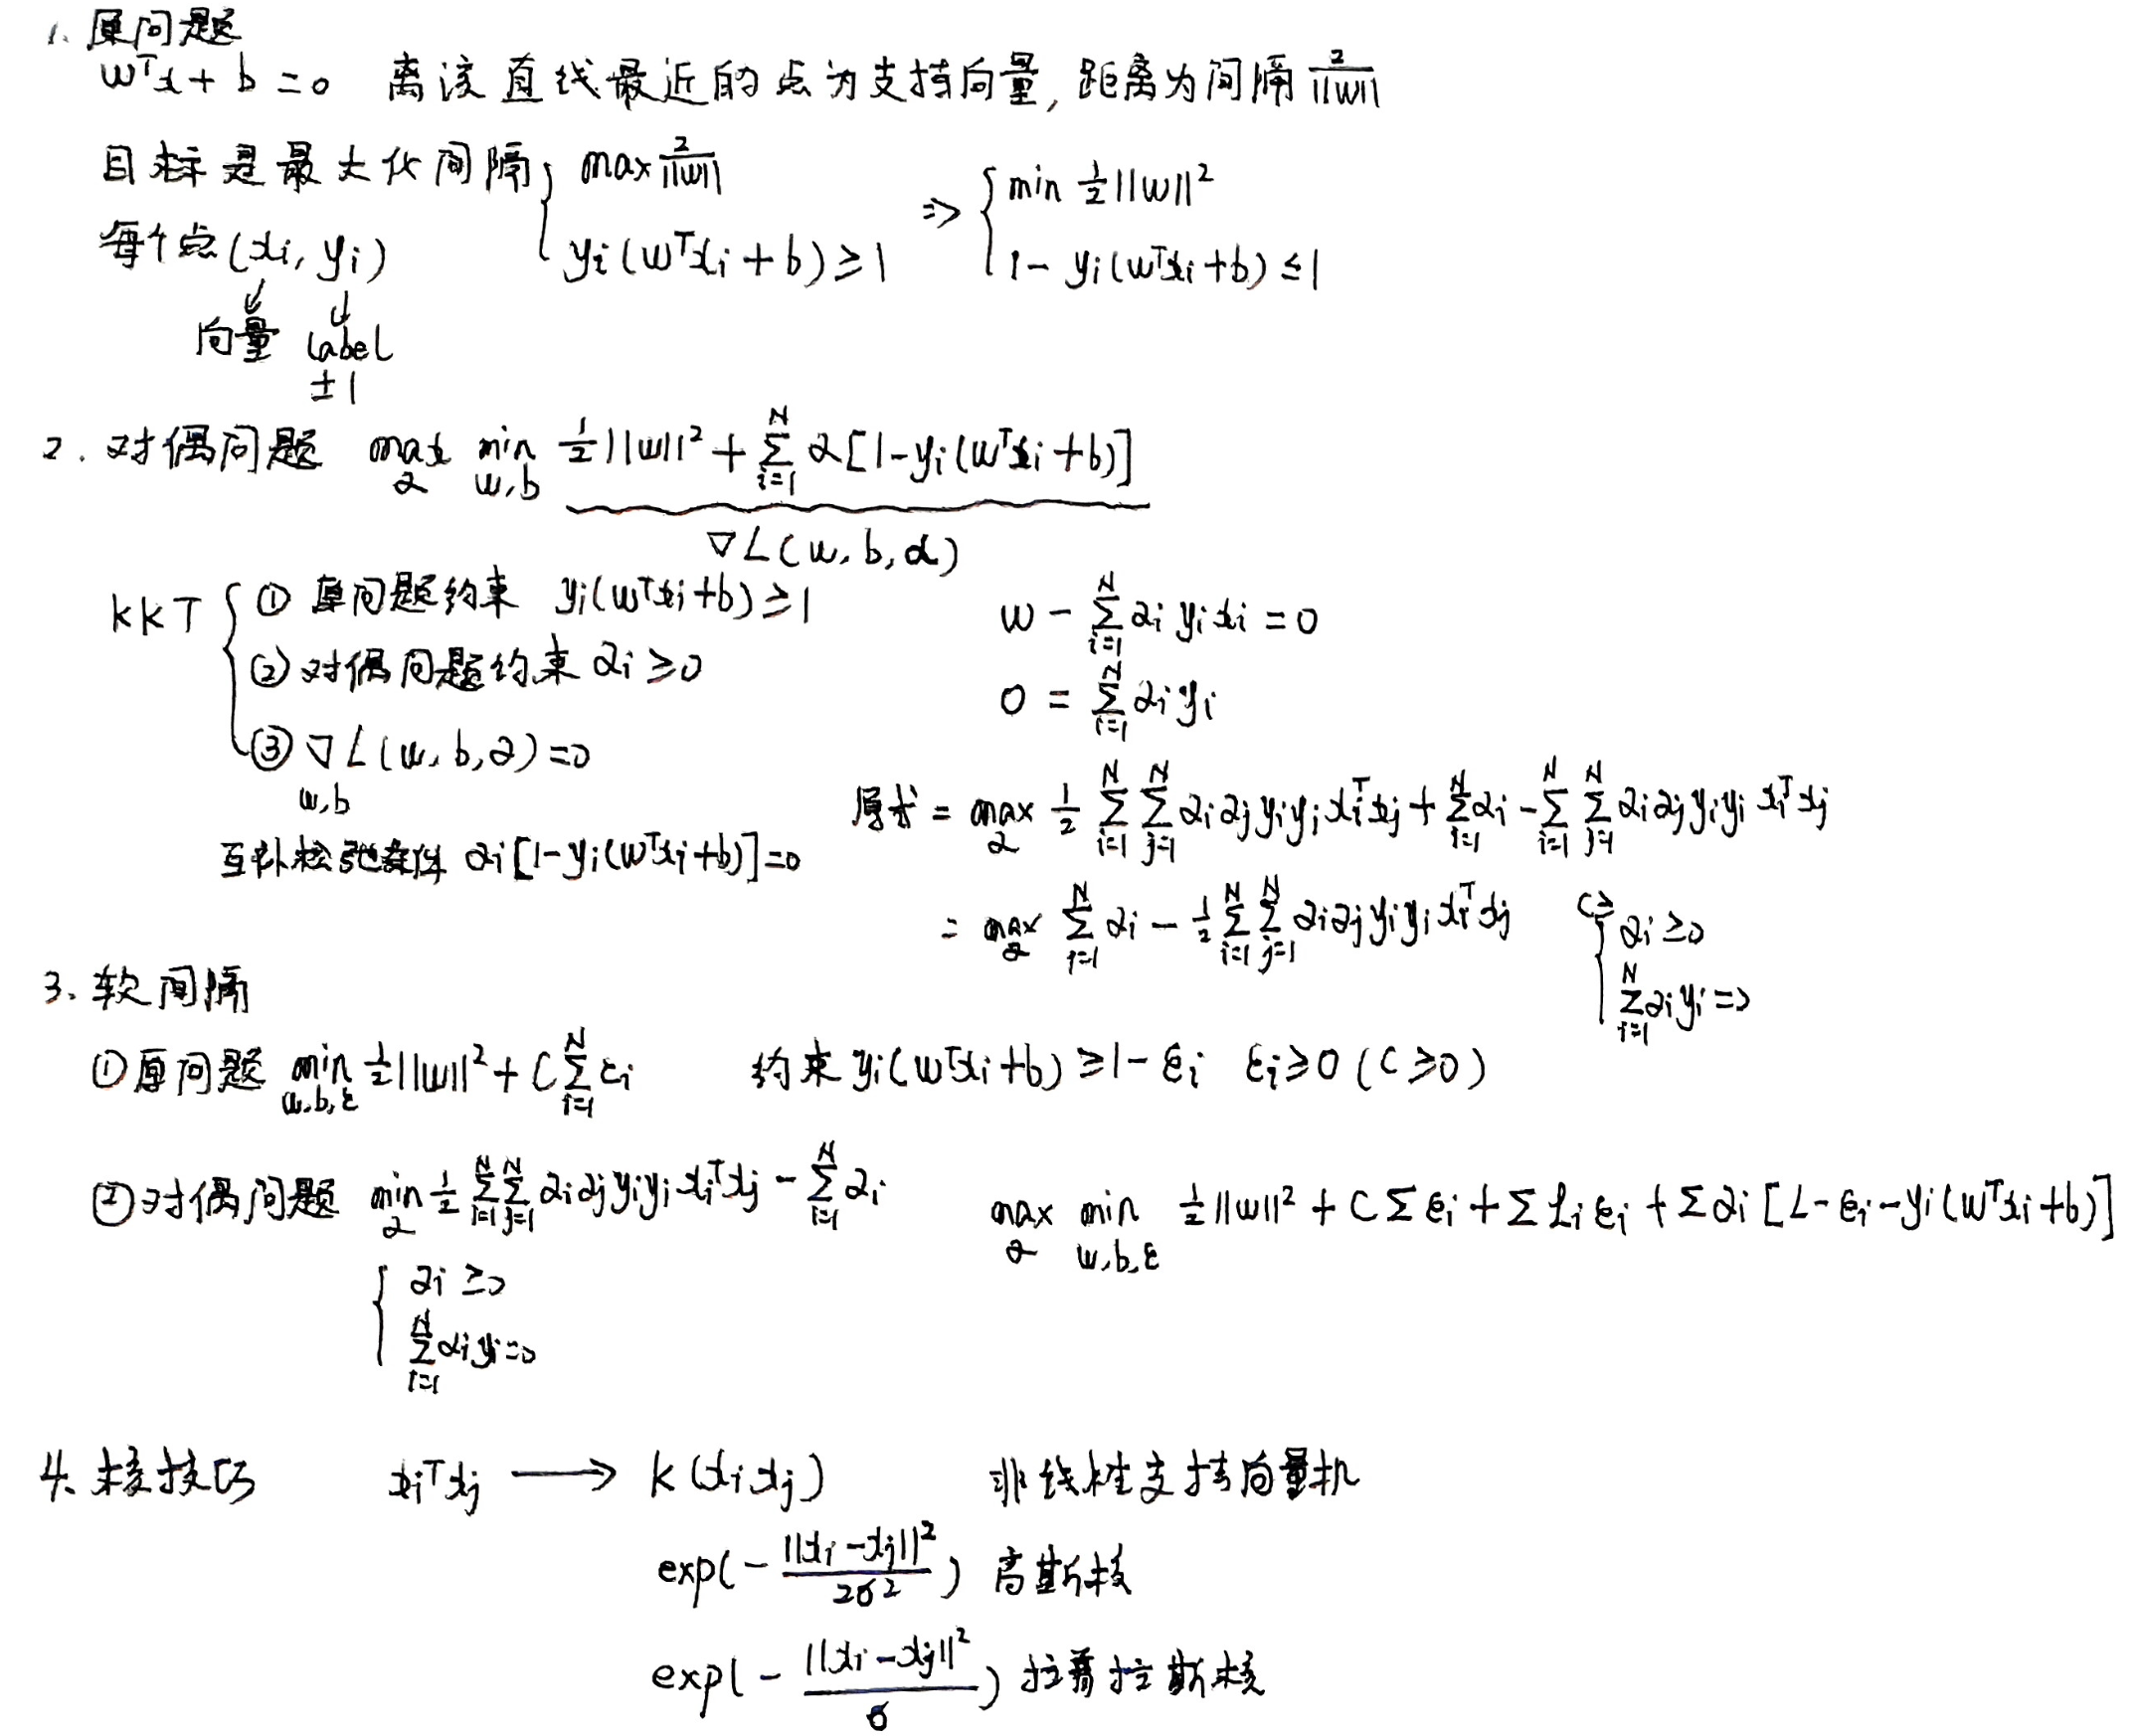 1. 原问题
wᵀx + b = 0 离该直线最近的点为支持向量, 距离为间隔 2/||w||
目标是最大化间隔 { max 2/||w||
yᵢ(wᵀxᵢ + b) ≥ 1
⇒ { min ½||w||²
1 - yᵢ(wᵀxᵢ + b) ≤ 1
每个点 (xᵢ, yᵢ)
↓ ↓
向量 label
±1
2. 对偶问题 max_α min_{w,b} ½||w||² + Σ_{i=1}^N α[1 - yᵢ(wᵀxᵢ + b)]
∇L(w, b, α)
KKT { ① 原问题约束 yᵢ(wᵀxᵢ + b) ≥ 1
② 对偶问题约束 αᵢ ≥ 0
③ ∇_{w,b} L(w, b, α) = 0
互补松弛条件 αᵢ[1 - yᵢ(wᵀxᵢ + b)] = 0
w - Σ_{i=1}^N αᵢyᵢxᵢ = 0
0 = Σ_{i=1}^N αᵢyᵢ
原式 = max_α ½ Σ_{i=1}^N Σ_{j=1}^N αᵢαⱼyᵢyⱼxᵢᵀxⱼ + Σ_{i=1}^N αᵢ - Σ_{i=1}^N Σ_{j=1}^N αᵢαⱼyᵢyⱼxᵢᵀxⱼ
= max_α Σ_{i=1}^N αᵢ - ½ Σ_{i=1}^N Σ_{j=1}^N αᵢαⱼyᵢyⱼxᵢᵀxⱼ C≥ { αᵢ ≥ 0
Σ_{i=1}^N αᵢyᵢ = 0
3. 软间隔
① 原问题 min_{w,b,ε} ½||w||² + C Σ_{i=1}^N εᵢ 约束 yᵢ(wᵀxᵢ + b) ≥ 1 - εᵢ εᵢ ≥ 0 (C ≥ 0)
② 对偶问题 min_α ½ Σ_{i=1}^N Σ_{j=1}^N αᵢαⱼyᵢyⱼxᵢᵀxⱼ - Σ_{i=1}^N αᵢ
{ αᵢ ≥ 0
Σ_{i=1}^N αᵢyᵢ = 0
max_α min_{w,b,ε} ½||w||² + C Σ εᵢ + Σ εᵢ + Σ αᵢ [1 - εᵢ - yᵢ(wᵀxᵢ + b)]
4. 核技巧 xᵢᵀxⱼ → K(xᵢxⱼ) 非线性支持向量机
exp(- ||xᵢ - xⱼ||² / 2σ²) 高斯核
exp(- ||xᵢ - xⱼ||² / σ) 拉普拉斯核